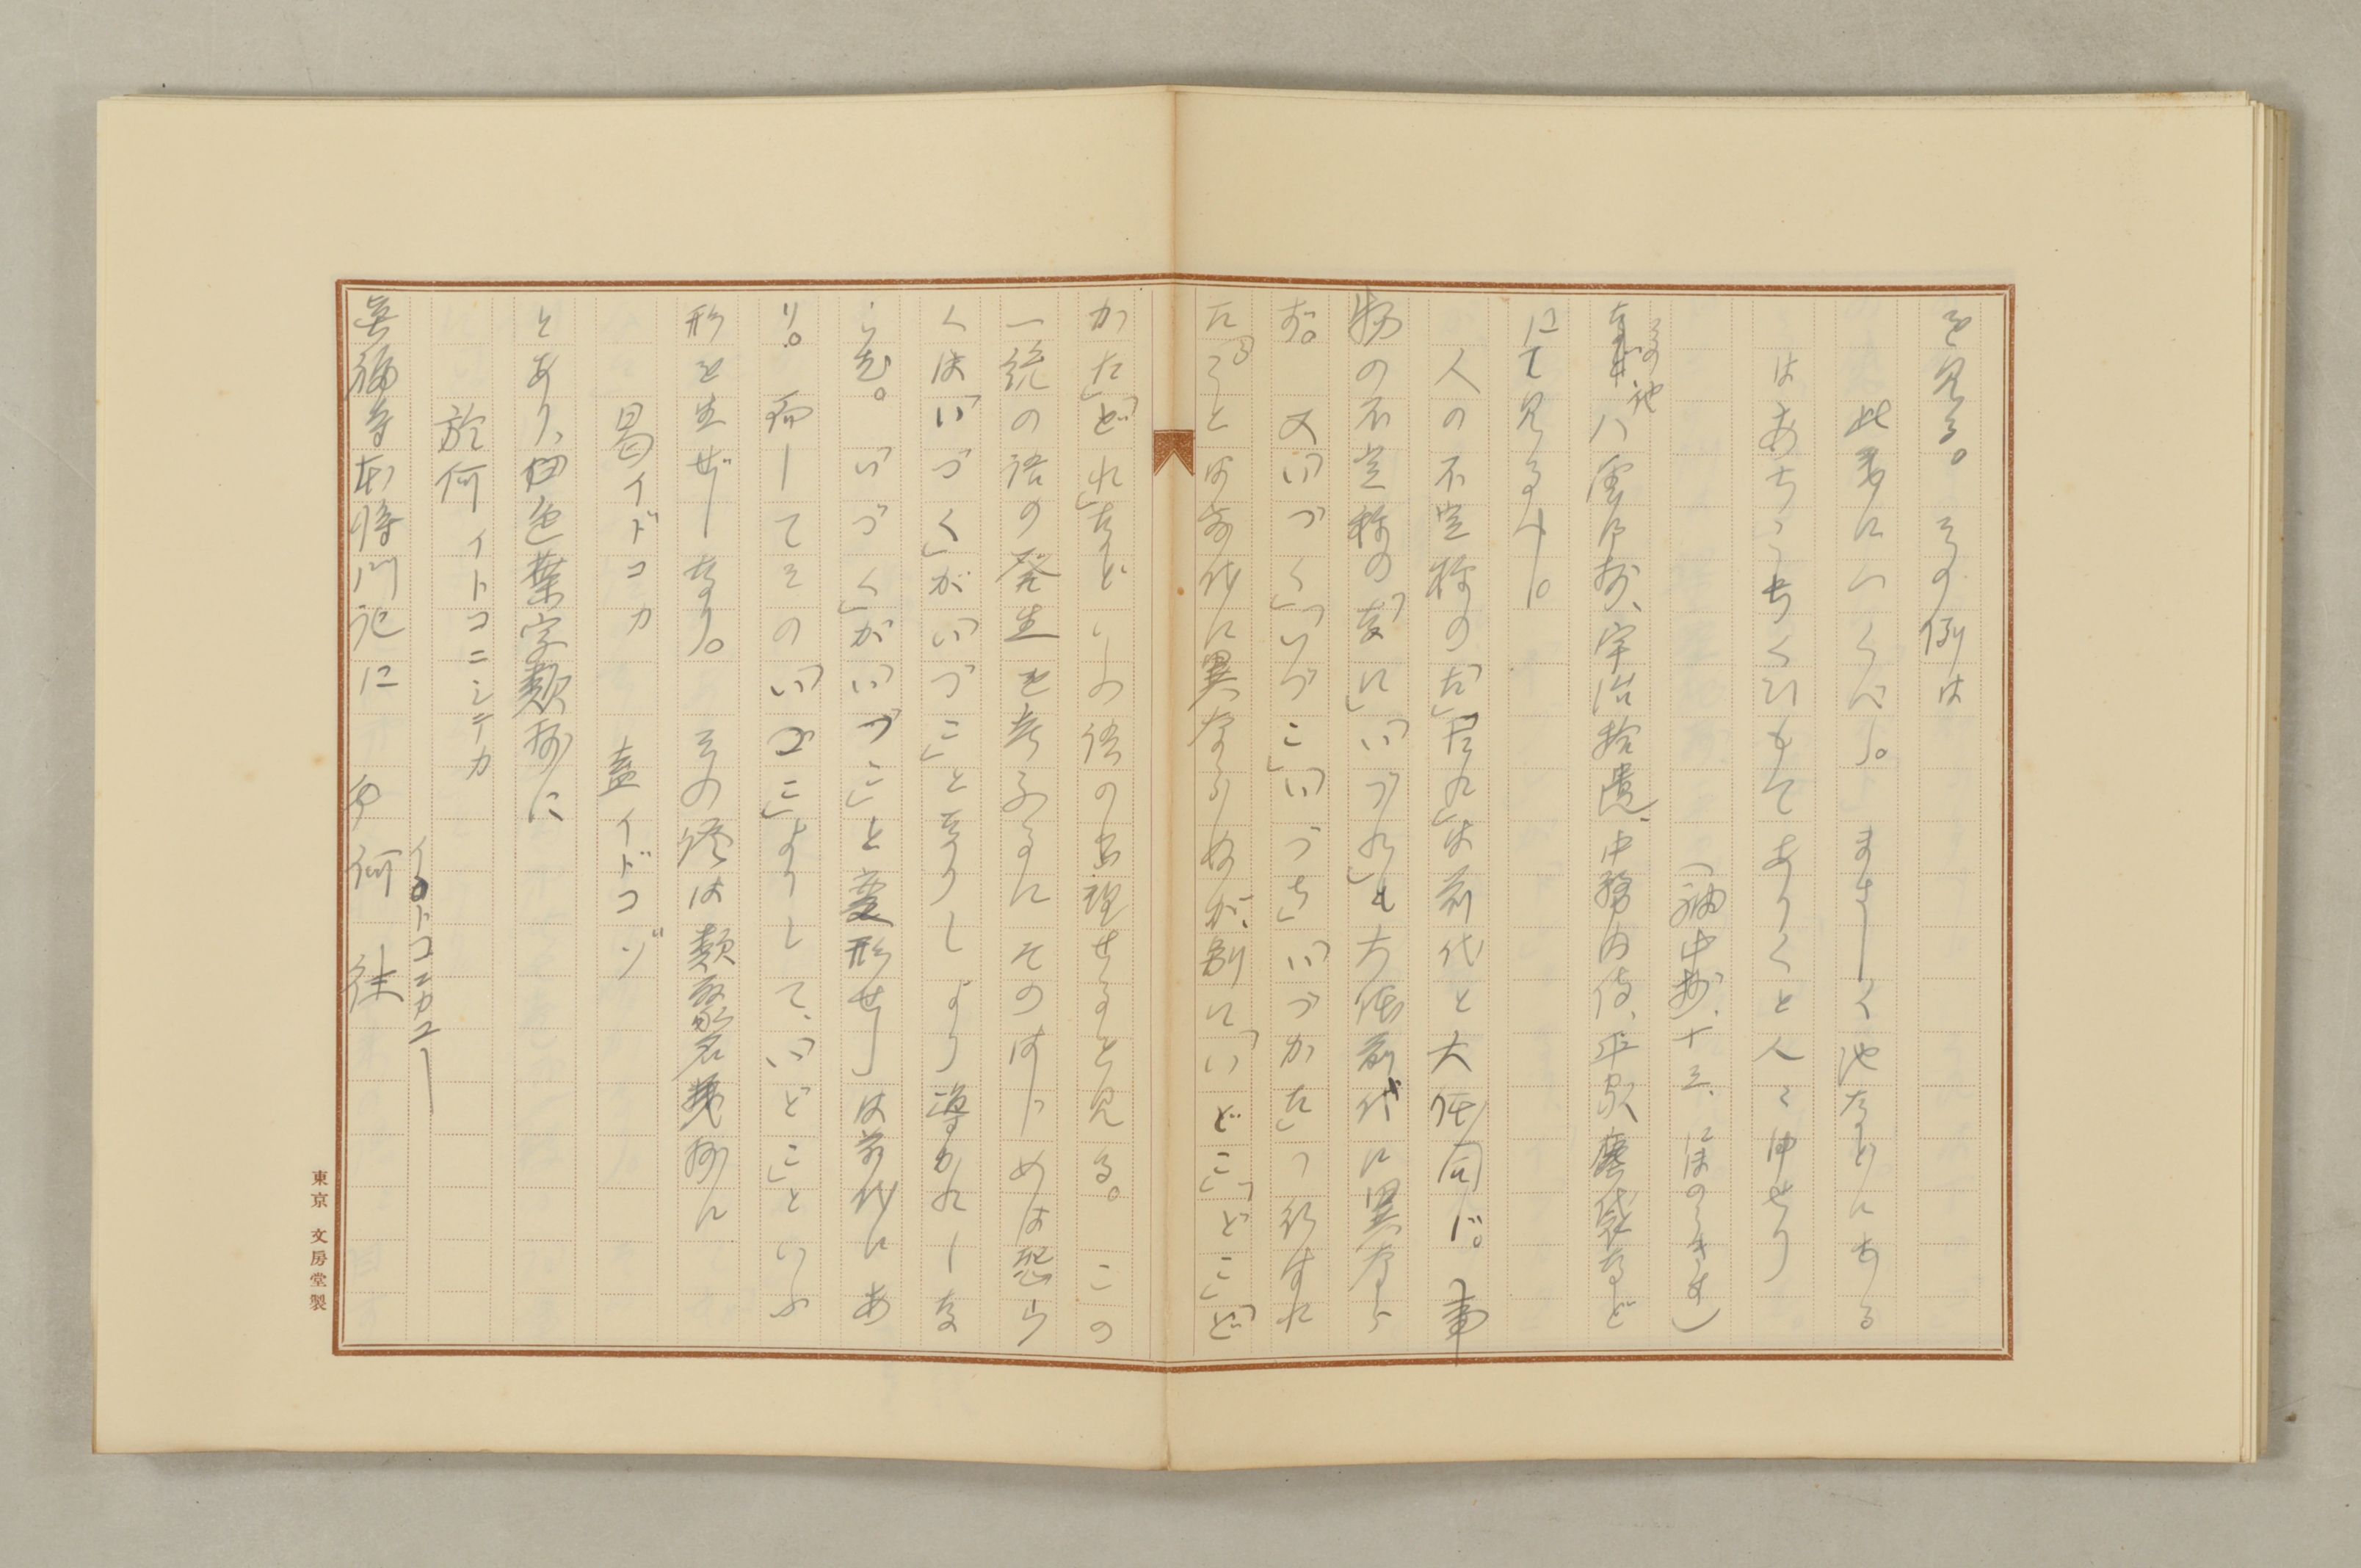 を見る。その例は
此事にいくべし。まさしく池などにある
はあちこちくひもてありくと人々申せり
(袖中抄、十三、にほのうきす)
その他
八雲御抄、宇治拾遺、中務内侍、平家、塵袋など
にて見るべし。
人の不定称の「た」「たれ」は前代と大体同じ。事
物の不定称の「なに」「いづれ」も大体前代に異なら
ず。又「いづく」「いづこ」「いづち」「いづかた」の行はれ
たることは前代に異ならぬが、別に「いどこ」「どこ」「ど
かた」「どれ」などいふ語の出現せるを見る。この
一統の語の発生を考ふるにそのはじめは恐ら
くは「いづく」が「いづこ」となりしより導かれしな
らむ。「いづく」が「いづこ」と変形せしは前代にあ
り。而してその「いづこ」よりして、「いどこ」といふ
形を生ぜしなり。その証は類聚名義抄に
曷イドコカ 盍イドコゾ
とあり、伊色葉字類抄に
於何イトコニシテカ
イトコニカユー
真福寺本将門記に 何往
東京 文房堂製